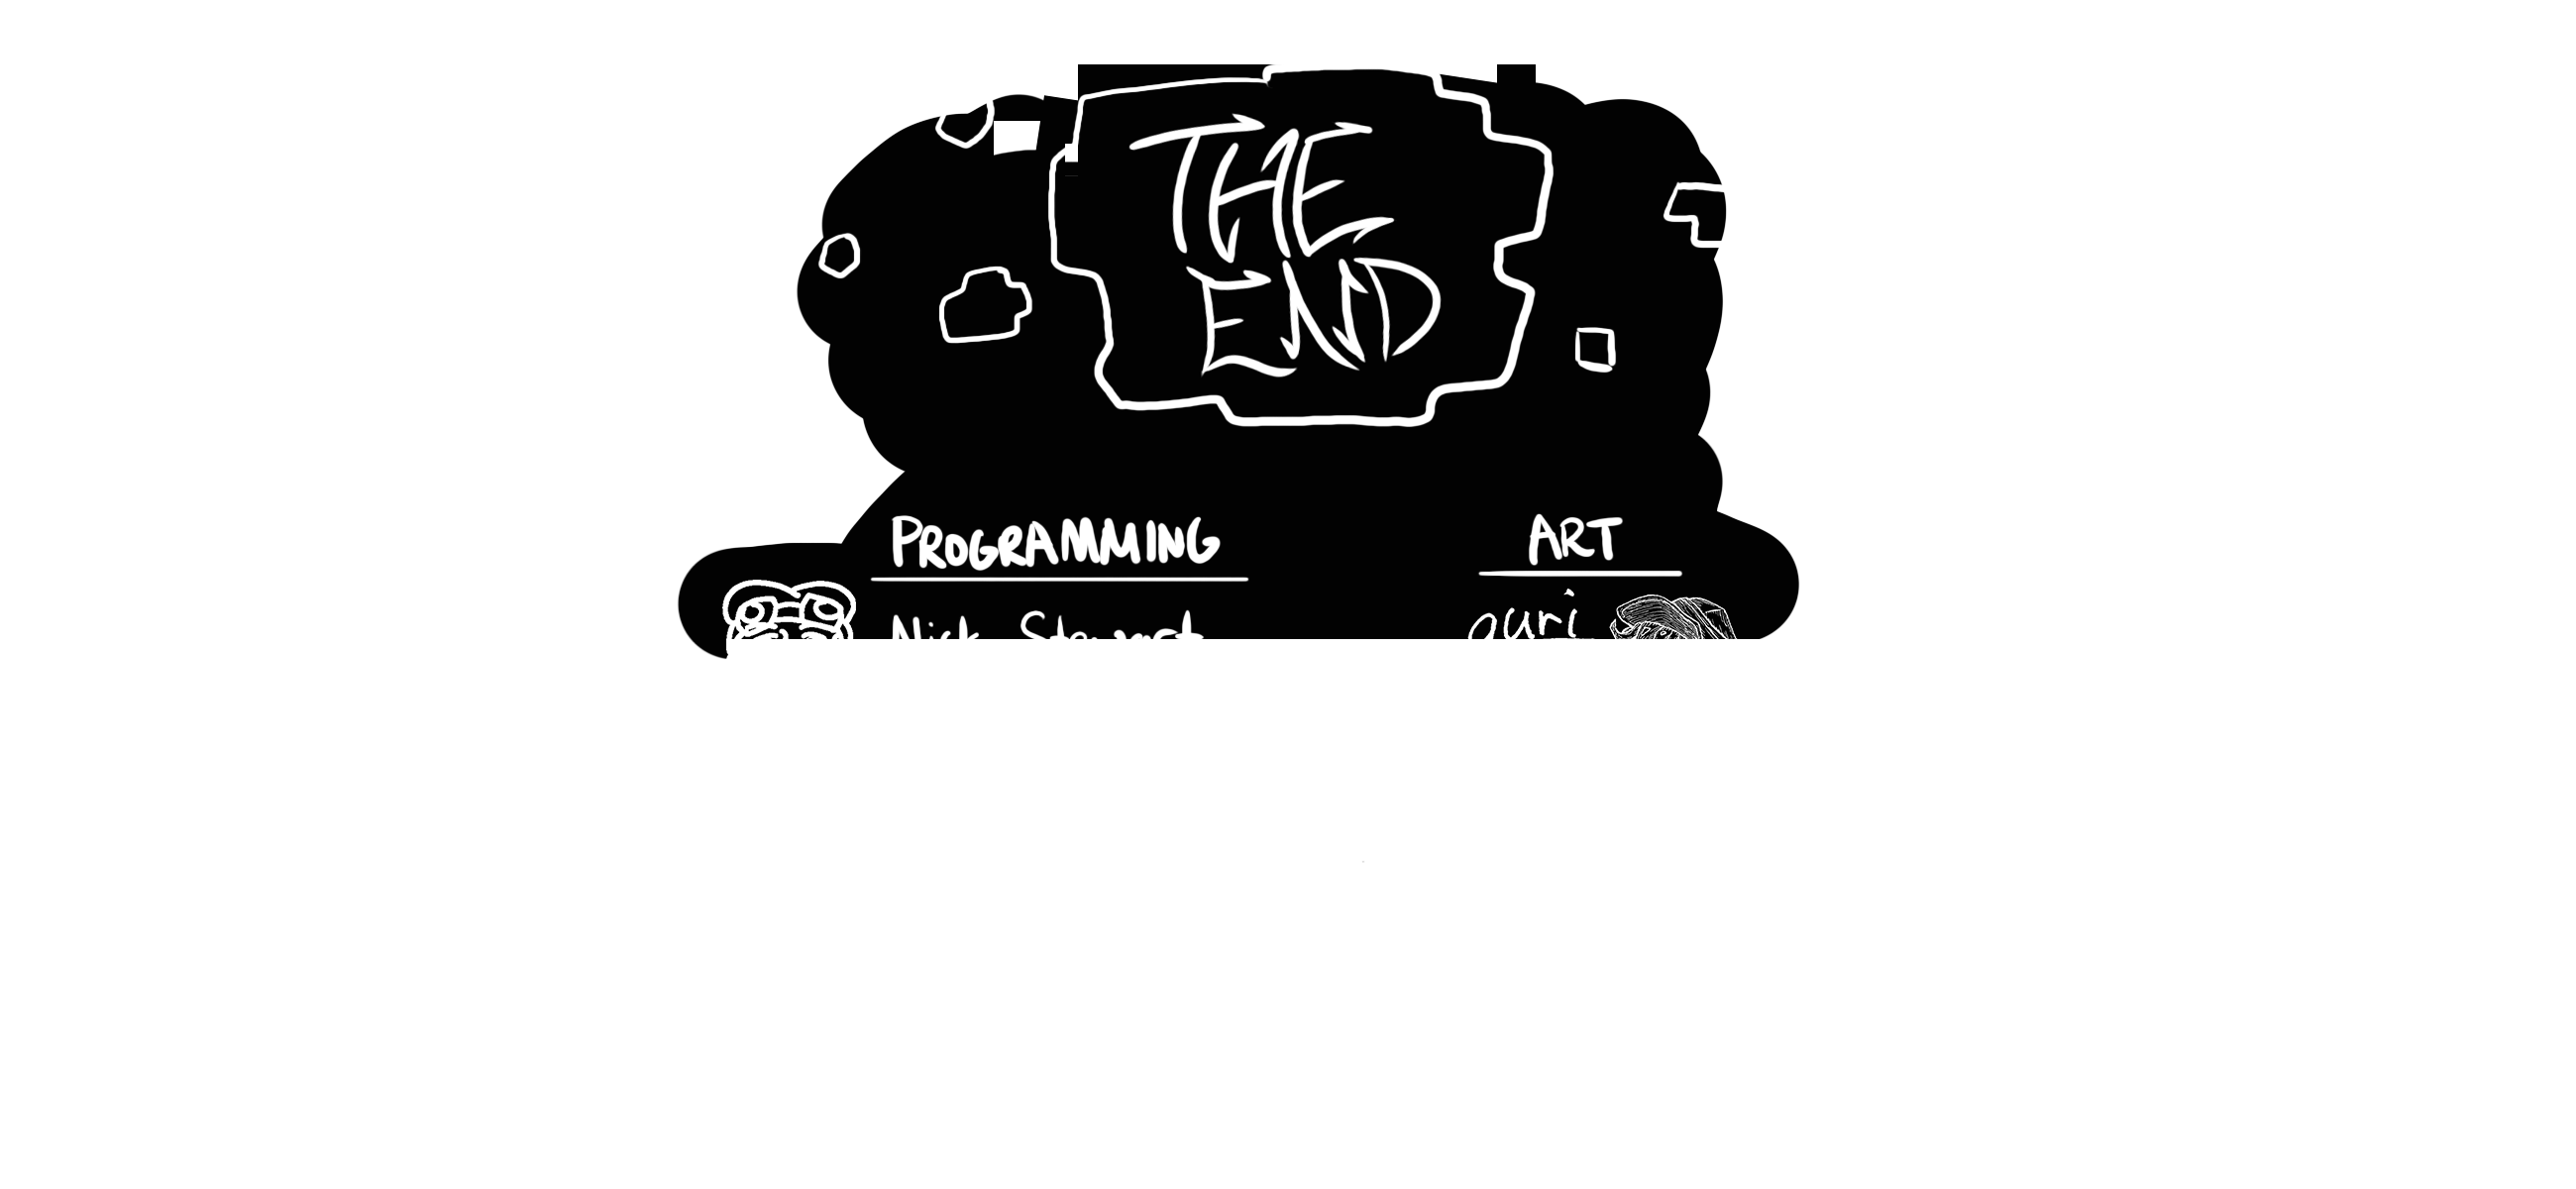 THE
END
PROGRAMMING
ART
Nick Stewart
auri